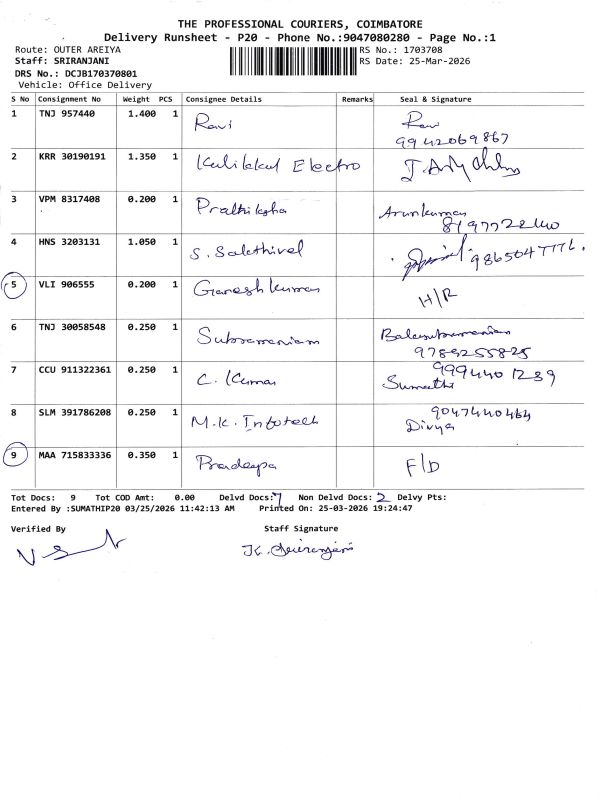 THE PROFESSIONAL COURIERS, COIMBATORE
Delivery Runsheet - P20 - Phone No.:9047080280 - Page No.:1
Route: OUTER AREIYA RS No.: 1703708
Staff: SRIRANJANI RS Date: 25-Mar-2026
DRS No.: DCJB170370801
Vehicle: Office Delivery
S No Consignment No Weight PCS Consignee Details Remarks Seal & Signature
1 TNJ 957440 1.400 1 Ravi Ravi
9942069867
2 KRR 30190191 1.350 1 Kalikkal Electro
3 VPM 8317408 0.200 1 Prathiksha Arunkumar
4 HNS 3203131 1.050 1 S. Sakthivel
5 VLI 906555 0.200 1 Ganesh kumar H/R
6 TNJ 30058548 0.250 1 Subramaniam Balasubramanian
9789255825
7 CCU 911322361 0.250 1 C. Kumar 9994401239
Sumathi
8 SLM 391786208 0.250 1 M.K. Infotech 9047440464
Divya
9 MAA 715833336 0.350 1 Pradeepa F/D
Tot Docs: 9 Tot COD Amt: 0.00 Delvd Docs: 7 Non Delvd Docs: 2 Delvy Pts:
Entered By :SUMATHIP20 03/25/2026 11:42:13 AM Printed On: 25-03-2026 19:24:47
Verified By Staff Signature
K. Sriranjani